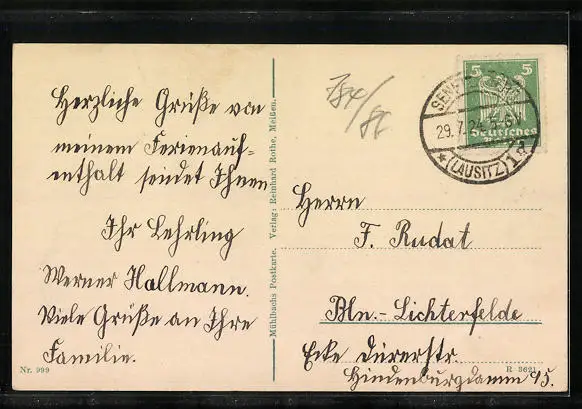 Herzliche Grüße von
meinem Ferienauf-
enthalt seindet Ihnen
Ihr Lehrling
Werner Hallmann.
Viele Grüße an Ihre
Familie.
Nr. 999
Mühlbachs Postkarte. Verlag: Reinhard Rothe, Meißen.
5 5
Deutsches
29.7.24. 5-6
*(LAUSITZ)1a
Herrn
F. Rudat
Bln.-Lichterfelde
Ecke Dürerstr
Hindenburgdamm 95.
R 3621